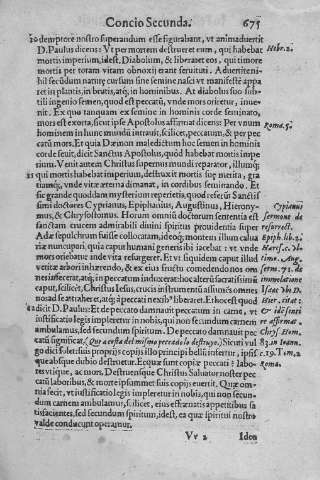 Concio Secunda. 675
demptore nostro superandum esse figurabant, vt animaduertit
D. Paulus dicens: Vt per mortem destrueret eum, qui habebat
mortis imperium, idest, Diabolum, & liberaret eos, qui timore
mortis per totam vitam obnoxij erant seruituti. Aduertite ni-
hil secũdum naturę cursum sine semine nasci vt manifestè appa
ret in plantis, in brutis, atq; in hominibus. At diabolus suo sub-
tili ingenio semen, quod est peccatũ, vnde mors oriretur, inue-
nit. Ex quo tanquam ex semine in hominis corde seminato,
mors est exorta, sicut ipse Apostolus affirmat dicens: Per vnum
hominem in hunc mundũ intrauit, scilicet, peccatum, & per pec
catũ mors. Et quia Dæmon maledictum hoc semen in hominis
corde seuit, dicit Sanctus Apostolus, quòd habebat mortis impe
rium. Venit autem Christus supremus mundi reparator, illumq;
qui mortis habebat imperium, destruxit mortis suę merita, gra
tiamq; vnde vitæ æterna dimanat, in cordibus seminando. Et
sic grande quoddam mysterium reperietis, quod referũt Sanctis
simi doctores Cyprianus, Epiphanius, Augustinus, Hierony-
mus, & Chrysostomus. Horum omniũ doctorum sententia est
sanctam crucem admirabili diuini spiritus prouidentia super
Adæ sepulchrum fuisse collocatam, ideoq; montem illum calua
riæ nuncupari, quia caput humani generis ibi iacebat: vt vnde
mors oriebatur inde vita resurgeret. Et vt siquidem caput illud
vetitæ arbori inhærendo, & ex eius fructu comedendo nos om
nes infecerat, atq; in peccatum induxerat: hoc alterũ sacratissimũ
caput, scilicet, Christus Iesus, crucis instrumento affixus omnes
nos ad se attraheret, atq; à peccati nexib⁹ liberaret. Et hoc est quod
dicit D. Paulus: Et de peccato damnauit peccatum in carne, vt
iustificatio legis impleretur in nobis, qui non secundum carnem
ambulamus, sed secundum spiritum. De peccato damnauit pec
catũ significat, (Que a costa del mismo peccado lo destruyo.) Sicut vul
gò dici solet suis proprijs copijs illo principi bellũ infertur, ipsis
que absque dubio destruetur. Ecquæ sunt copiæ peccati? labo-
res vtique, ac mors. Destruens que Christus Saluator noster pec
catũ laboribus, & morte ipsummet suis copijs euertit. Quæ om-
nia fecit, vt iustificatio legis impleretur in nobis, qui non secun-
dum carnem ambulamus, scilicet, eius effrænatis appetitibus sa
tisfacientes, sed secundum spiritum, idest, ea quæ spiritus nostro
valde conducunt operamur.
Vv 2 Idon
Hebr. 2.
Roma. 5.
Cypianus
sermone de
resurrect.
Epiph. lib. 2.